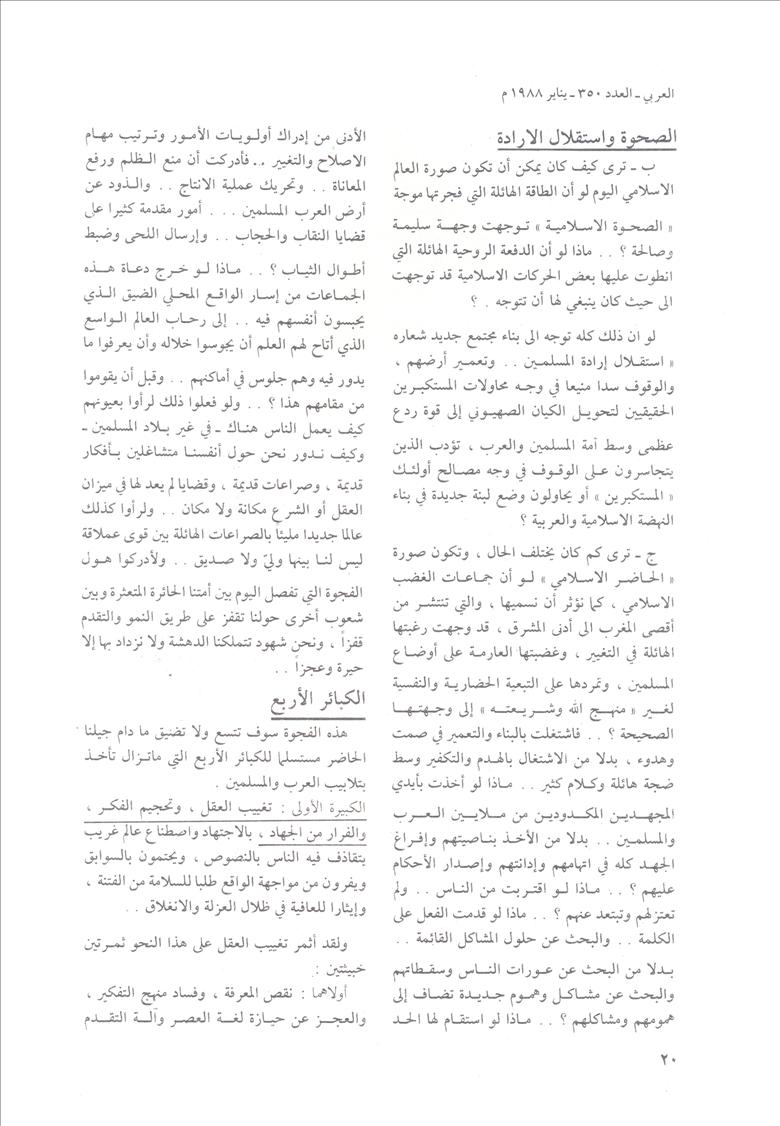 العربي ـ العدد ٣٥٠ ـ يناير ١٩٨٨ م
الصحوة واستقلال الارادة
ب ـ ترى كيف كان يمكن أن تكون صورة العالم
الاسلامي اليوم لو أن الطاقة الهائلة التي فجرتها موجة
« الصحوة الاسلامية » توجهت وجهة سليمة
وصالحة ؟ . . ماذا لو أن الدفعة الروحية الهائلة التي
انطوت عليها بعض الحركات الاسلامية قد توجهت
الى حيث كان ينبغي لها أن تتوجه . ؟
لو ان ذلك كله توجه الى بناء مجتمع جديد شعاره
« استقلال إرادة المسلمين . . وتعمير أرضهم ،
والوقوف سدا منيعا في وجه محاولات المستكبرين
الحقيقيين لتحويل الكيان الصهيوني إلى قوة ردع
عظمى وسط أمة المسلمين والعرب ، تؤدب الذين
يتجاسرون على الوقوف في وجه مصالح أولئك
« المستكبرين » أو يحاولون وضع لبنة جديدة في بناء
النهضة الاسلامية والعربية ؟
ج ـ ترى كم كان يختلف الحال ، وتكون صورة
« الحاضر الاسلامي » لو أن جماعات الغضب
الاسلامي ، كما نؤثر أن نسميها ، والتي تنتشر من
أقصى المغرب الى أدنى المشرق ، قد وجهت رغبتها
الهائلة في التغيير ، وغضبتها العارمة على أوضاع
المسلمين ، وتمردها على التبعية الحضارية والنفسية
لغير « منهج الله وشريعته » إلى وجهتها
الصحيحة ؟ . . فاشتغلت بالبناء والتعمير في صمت
وهدوء ، بدلا من الاشتغال بالهدم والتكفير وسط
ضجة هائلة وكلام كثير . . ماذا لو أخذت بأيدي
المجهدين المكدودين من ملايين العرب
والمسلمين . . بدلا من الأخذ بناصيتهم وإفراغ
الجهد كله في اتهامهم وإدانتهم وإصدار الأحكام
عليهم ؟ . . ماذا لو اقتربت من الناس . . ولم
تعتزلهم وتبتعد عنهم ؟ . . ماذا لو قدمت الفعل على
الكلمة . . والبحث عن حلول المشاكل القائمة . .
بدلا من البحث عن عورات الناس وسقطاتهم
والبحث عن مشاكل وهموم جديدة تضاف إلى
همومهم ومشاكلهم ؟ . . ماذا لو استقام لها الحد
الأدنى من إدراك أولويات الأمور وترتيب مهام
الاصلاح والتغيير . . فأدركت أن منع الظلم ورفع
المعاناة . . وتحريك عملية الانتاج . . والذود عن
أرض العرب المسلمين . . . أمور مقدمة كثيرا على
قضايا النقاب والحجاب . . وإرسال اللحى وضبط
أطوال الثياب ؟ . . ماذا لو خرج دعاة هذه
الجماعات من إسار الواقع المحلي الضيق الذي
يحبسون أنفسهم فيه . . إلى رحاب العالم الواسع
الذي أتاح لهم العلم أن يجوسوا خلاله وأن يعرفوا ما
يدور فيه وهم جلوس في أماكنهم . . وقبل أن يقوموا
من مقامهم هذا ؟ . . ولو فعلوا ذلك لرأوا بعيونهم
كيف يعمل الناس هناك ـ في غير بلاد المسلمين ـ
وكيف ندور نحن حول أنفسنا متشاغلين بأفكار
قديمة ، وصراعات قديمة ، وقضايا لم يعد لها في ميزان
العقل أو الشرع مكانة ولا مكان . . ولرأوا كذلك
عالما جديدا مليئاً بالصراعات الهائلة بين قوى عملاقة
ليس لنا بينها وليّ ولا صديق . . ولأدركوا هول
الفجوة التي تفصل اليوم بين أمتنا الحائرة المتعثرة وبين
شعوب أخرى حولنا تقفز على طريق النمو والتقدم
قفزاً ، ونحن شهود تتملكنا الدهشة ولا نزداد بها إلا
حيرة وعجزاً . .
الكبائر الأربع
هذه الفجوة سوف تتسع ولا تضيق ما دام جيلنا
الحاضر مستسلما للكبائر الأربع التي ماتزال تأخذ
بتلابيب العرب والمسلمين .
الكبيرة الأولى : تغييب العقل ، وتحجيم الفكر ،
والفرار من الجهاد ، بالاجتهاد واصطناع عالم غريب
يتقاذف فيه الناس بالنصوص ، ويحتمون بالسوابق
ويفرون من مواجهة الواقع طلبا للسلامة من الفتنة ،
وإيثارا للعافية في ظلال العزلة والانغلاق . .
ولقد أثمر تغييب العقل على هذا النحو ثمرتين
خبيثتين :
أولاهما : نقص المعرفة ، وفساد منهج التفكير ،
والعجز عن حيازة لغة العصر وآلة التقدم
٢٠